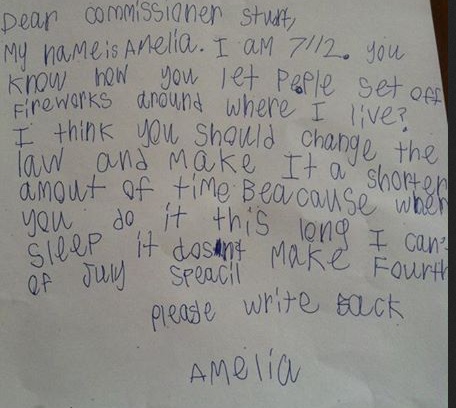 Dear commissioner stuart,
My name is Amelia. I am 7 1/2. you
know how you let peple set off
fireworks around where I live?
I think you should change the
law and make It a shorter
amout of time Beacause when
you do it this long I can't
sleep it dosnt make Fourth
of July speacil
please write back
Amelia